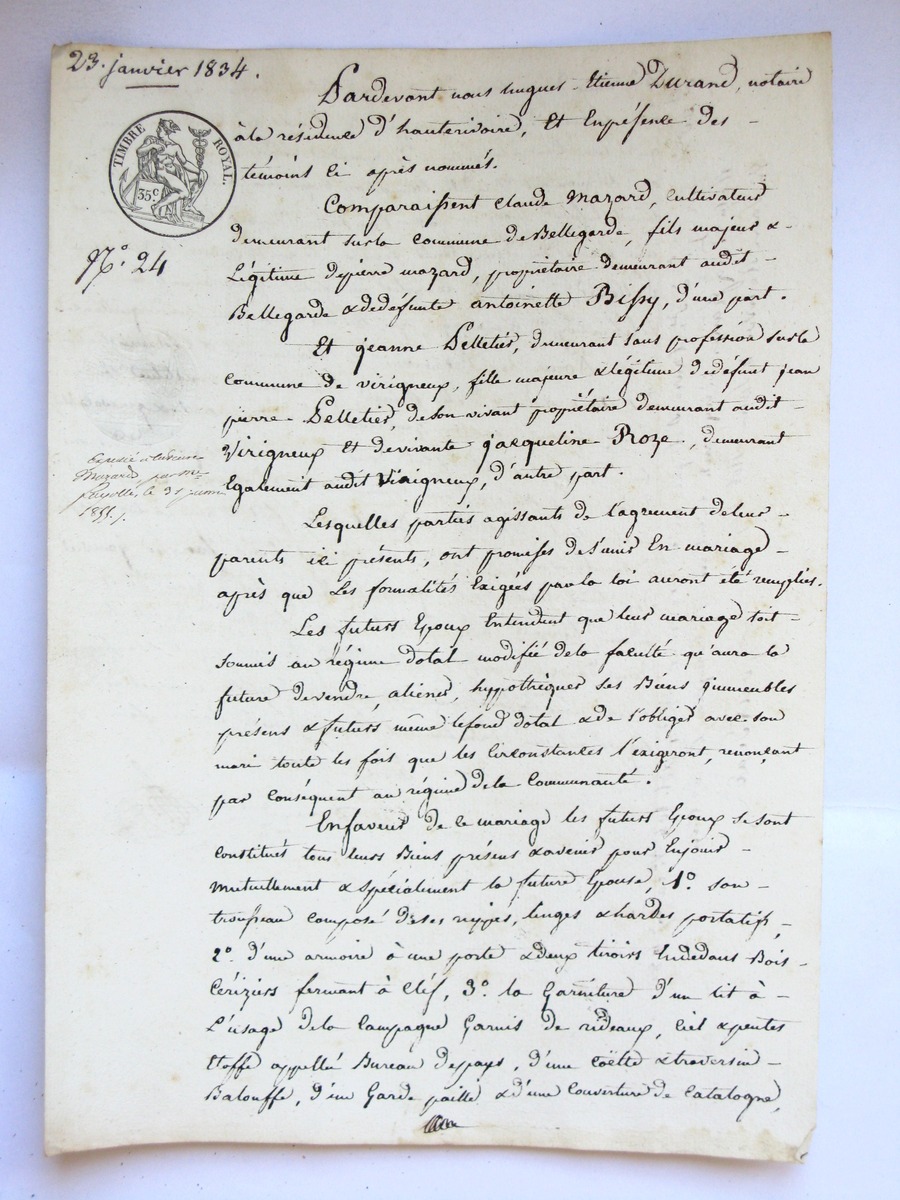 23. janvier 1834.
Pardevant nous hugues-Etienne Durand, notaire
à la résidence d'hauterivoire, Et En présence des -
témoins ci après nommés.
TIMBRE ROYAL.
35 c
N.o 24
Comparaissent Claude Mazard, Cultivateur
demeurant sur la Commune de Bellegarde, fils majeur &
Légitime de pierre mazard, propriétaire demeurant audit -
Bellegarde & de défunte antoinette Bissy, d'une part.
Et jeanne Pelletier, demeurant sans profession sur la
Commune de Virigneux, fille majeure & légitime de défunt jean
pierre - Pelletier, de son vivant propriétaire demeurant audit -
Virigneux Et de vivante jacqueline Roze, demeurant
Également audit Virigneux, d'autre part.
Mazard, par me
le 31
Lesquelles parties agissants de l'agrement de leur -
parents ici présents, ont promises de s'unir En mariage -
après que les formalités Exigées par la loi auront été remplies.
Les futurs Epoux Entendent que leur mariage soit -
soumis au régime dotal modifié de la faculté qu'aura la
future de vendre, aliener, hypothèquer ses Biens immeubles
présens & futurs même le fond dotal & de s'obliger avec son
mari toute les fois que les Circonstances l'exigeront, renonçant
par Conséquent au régime de la Communauté.
En faveur de ce mariage les futurs Epoux se sont
Constitués tous leurs Biens présens & avenir pour En jouir -
Mutuellement & spécialement la future Epouse, 1o. son -
trousseau composé de ses nippes, linges & hardes portatifs,
2o. d'une armoire à une porte & deux tiroirs En dedans Bois -
Cériziers fermant à Clef, 3o. la Garniture d'un lit à -
L'usage de la Campagne Garnis de rideaux, ciel & pentes
Etoffe appellée Bureau de pays, d'une Coëtte & traversin -
Balouffe, d'un Garde paille & d'une Couverture de Catalogne,